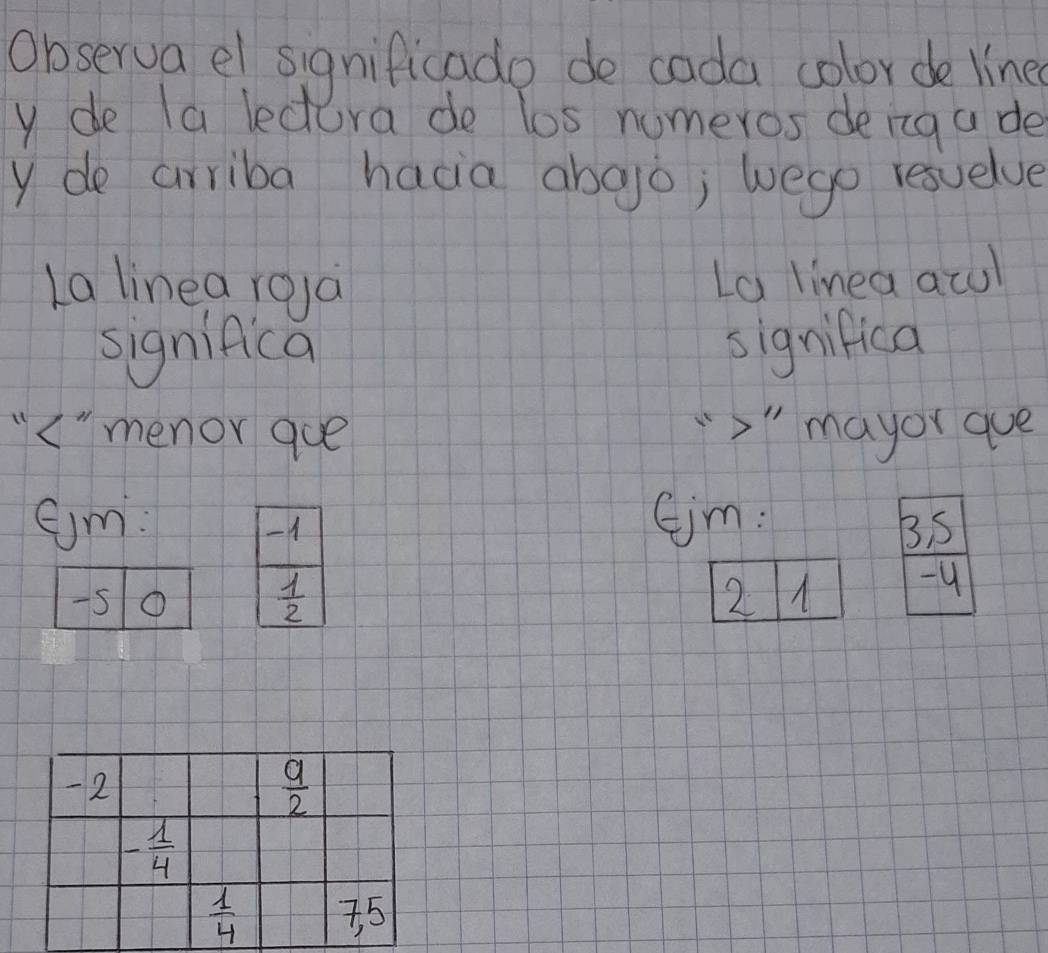 Observa el significado de cada color de linea
y de la lectura de los numeros de izq a de
y de arriba hacia abajo; luego resuelve
La linea roja La linea azul
significa significa
"<" menor que ">" mayor que
Ejm: -1 Ejm: 3,5
-5 0 1/2 2 1 -4
-2 9/2
-1/4
1/4 7,5